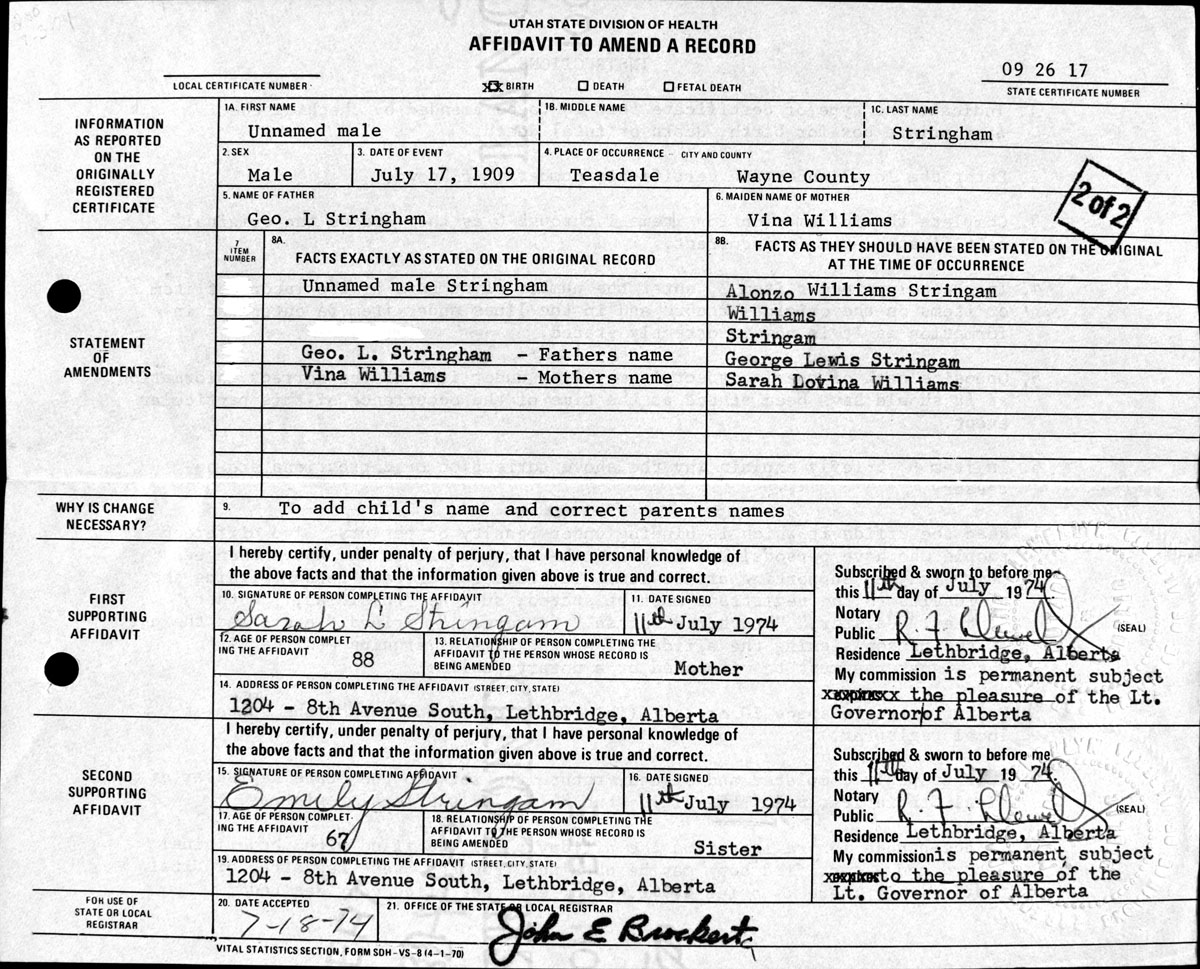 UTAH STATE DIVISION OF HEALTH
AFFIDAVIT TO AMEND A RECORD
LOCAL CERTIFICATE NUMBER
xx BIRTH DEATH FETAL DEATH
09 26 17
STATE CERTIFICATE NUMBER
INFORMATION
AS REPORTED
ON THE
ORIGINALLY
REGISTERED
CERTIFICATE
1A. FIRST NAME 1B. MIDDLE NAME 1C. LAST NAME
Unnamed male Stringham
2. SEX 3. DATE OF EVENT 4. PLACE OF OCCURRENCE - CITY AND COUNTY
Male July 17, 1909 Teasdale Wayne County
5. NAME OF FATHER 6. MAIDEN NAME OF MOTHER
Geo. L Stringham Vina Williams
2 of 2
STATEMENT
OF
AMENDMENTS
7
ITEM
NUMBER
8A.
FACTS EXACTLY AS STATED ON THE ORIGINAL RECORD
8B. FACTS AS THEY SHOULD HAVE BEEN STATED ON THE ORIGINAL
AT THE TIME OF OCCURRENCE
Unnamed male Stringham Alonzo Williams Stringam
Williams
Stringam
Geo. L. Stringham - Fathers name George Lewis Stringam
Vina Williams - Mothers name Sarah Dovina Williams
WHY IS CHANGE
NECESSARY?
9. To add child's name and correct parents names
FIRST
SUPPORTING
AFFIDAVIT
I hereby certify, under penalty of perjury, that I have personal knowledge of
the above facts and that the information given above is true and correct.
10. SIGNATURE OF PERSON COMPLETING THE AFFIDAVIT 11. DATE SIGNED
Sarah L Stringam 11th July 1974
12. AGE OF PERSON COMPLET
ING THE AFFIDAVIT 88
13. RELATIONSHIP OF PERSON COMPLETING THE
AFFIDAVIT TO THE PERSON WHOSE RECORD IS
BEING AMENDED Mother
14. ADDRESS OF PERSON COMPLETING THE AFFIDAVIT (STREET, CITY, STATE)
1204 - 8th Avenue South, Lethbridge, Alberta
Subscribed & sworn to before me
this 11th day of July 1974
Notary
Public R. F. (SEAL)
Residence Lethbridge, Alberta
My commission is permanent subject
the pleasure of the Lt.
Governor of Alberta
SECOND
SUPPORTING
AFFIDAVIT
I hereby certify, under penalty of perjury, that I have personal knowledge of
the above facts and that the information given above is true and correct.
15. SIGNATURE OF PERSON COMPLETING AFFIDAVIT 16. DATE SIGNED
Emily Stringam 11th July 1974
17. AGE OF PERSON COMPLET-
ING THE AFFIDAVIT 67
18. RELATIONSHIP OF PERSON COMPLETING THE
AFFIDAVIT TO THE PERSON WHOSE RECORD IS
BEING AMENDED Sister
19. ADDRESS OF PERSON COMPLETING THE AFFIDAVIT (STREET, CITY, STATE)
1204 - 8th Avenue South, Lethbridge, Alberta
Subscribed & sworn to before me
this 11th day of July 1974.
Notary
Public R. F. (SEAL)
Residence Lethbridge, Alberta
My commission is permanent subject
to the pleasure of the
Lt. Governor of Alberta
FOR USE OF
STATE OR LOCAL
REGISTRAR
20. DATE ACCEPTED 21. OFFICE OF THE STATE OR LOCAL REGISTRAR
7-18-74 John E Brockert
VITAL STATISTICS SECTION, FORM SDH-VS-8 (4-1-70)